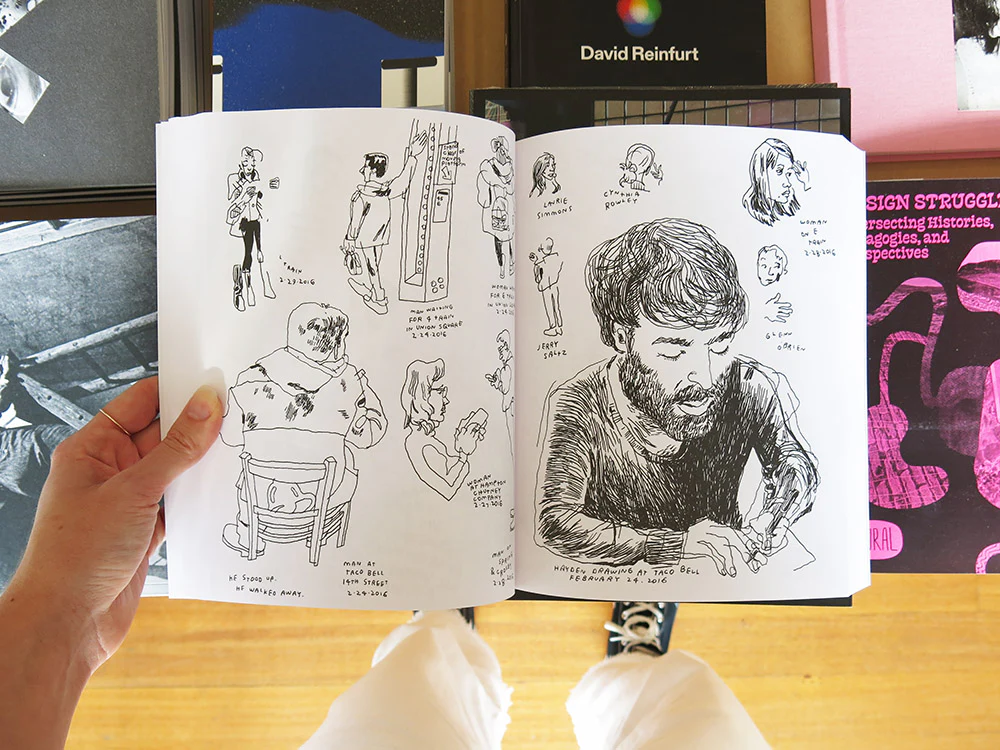 David Reinfurt
SIGN STRUGGL
ersecting Histories,
agogies, and
spectives
RAL
L TRAIN
2.29.2016
MAN WAITING
FOR 4 TRAIN
IN UNION SQUARE
2.24.2016
FOR 6
IN UNION
HE STOOD UP.
HE WALKED AWAY.
MAN AT
TACO BELL
14TH STREET
2.24.2016
WOMAN
AT HAMPTON
CHUTNEY
COMPANY
2.27.2016
LAURIE
SIMMONS
CYNTHIA
ROWLEY
WOMAN
ON E
TRAIN
2.28.2016
JERRY
SALTZ
GLENN
O'BRIEN
HAYDEN DRAWING AT TACO BELL
FEBRUARY 24. 2016